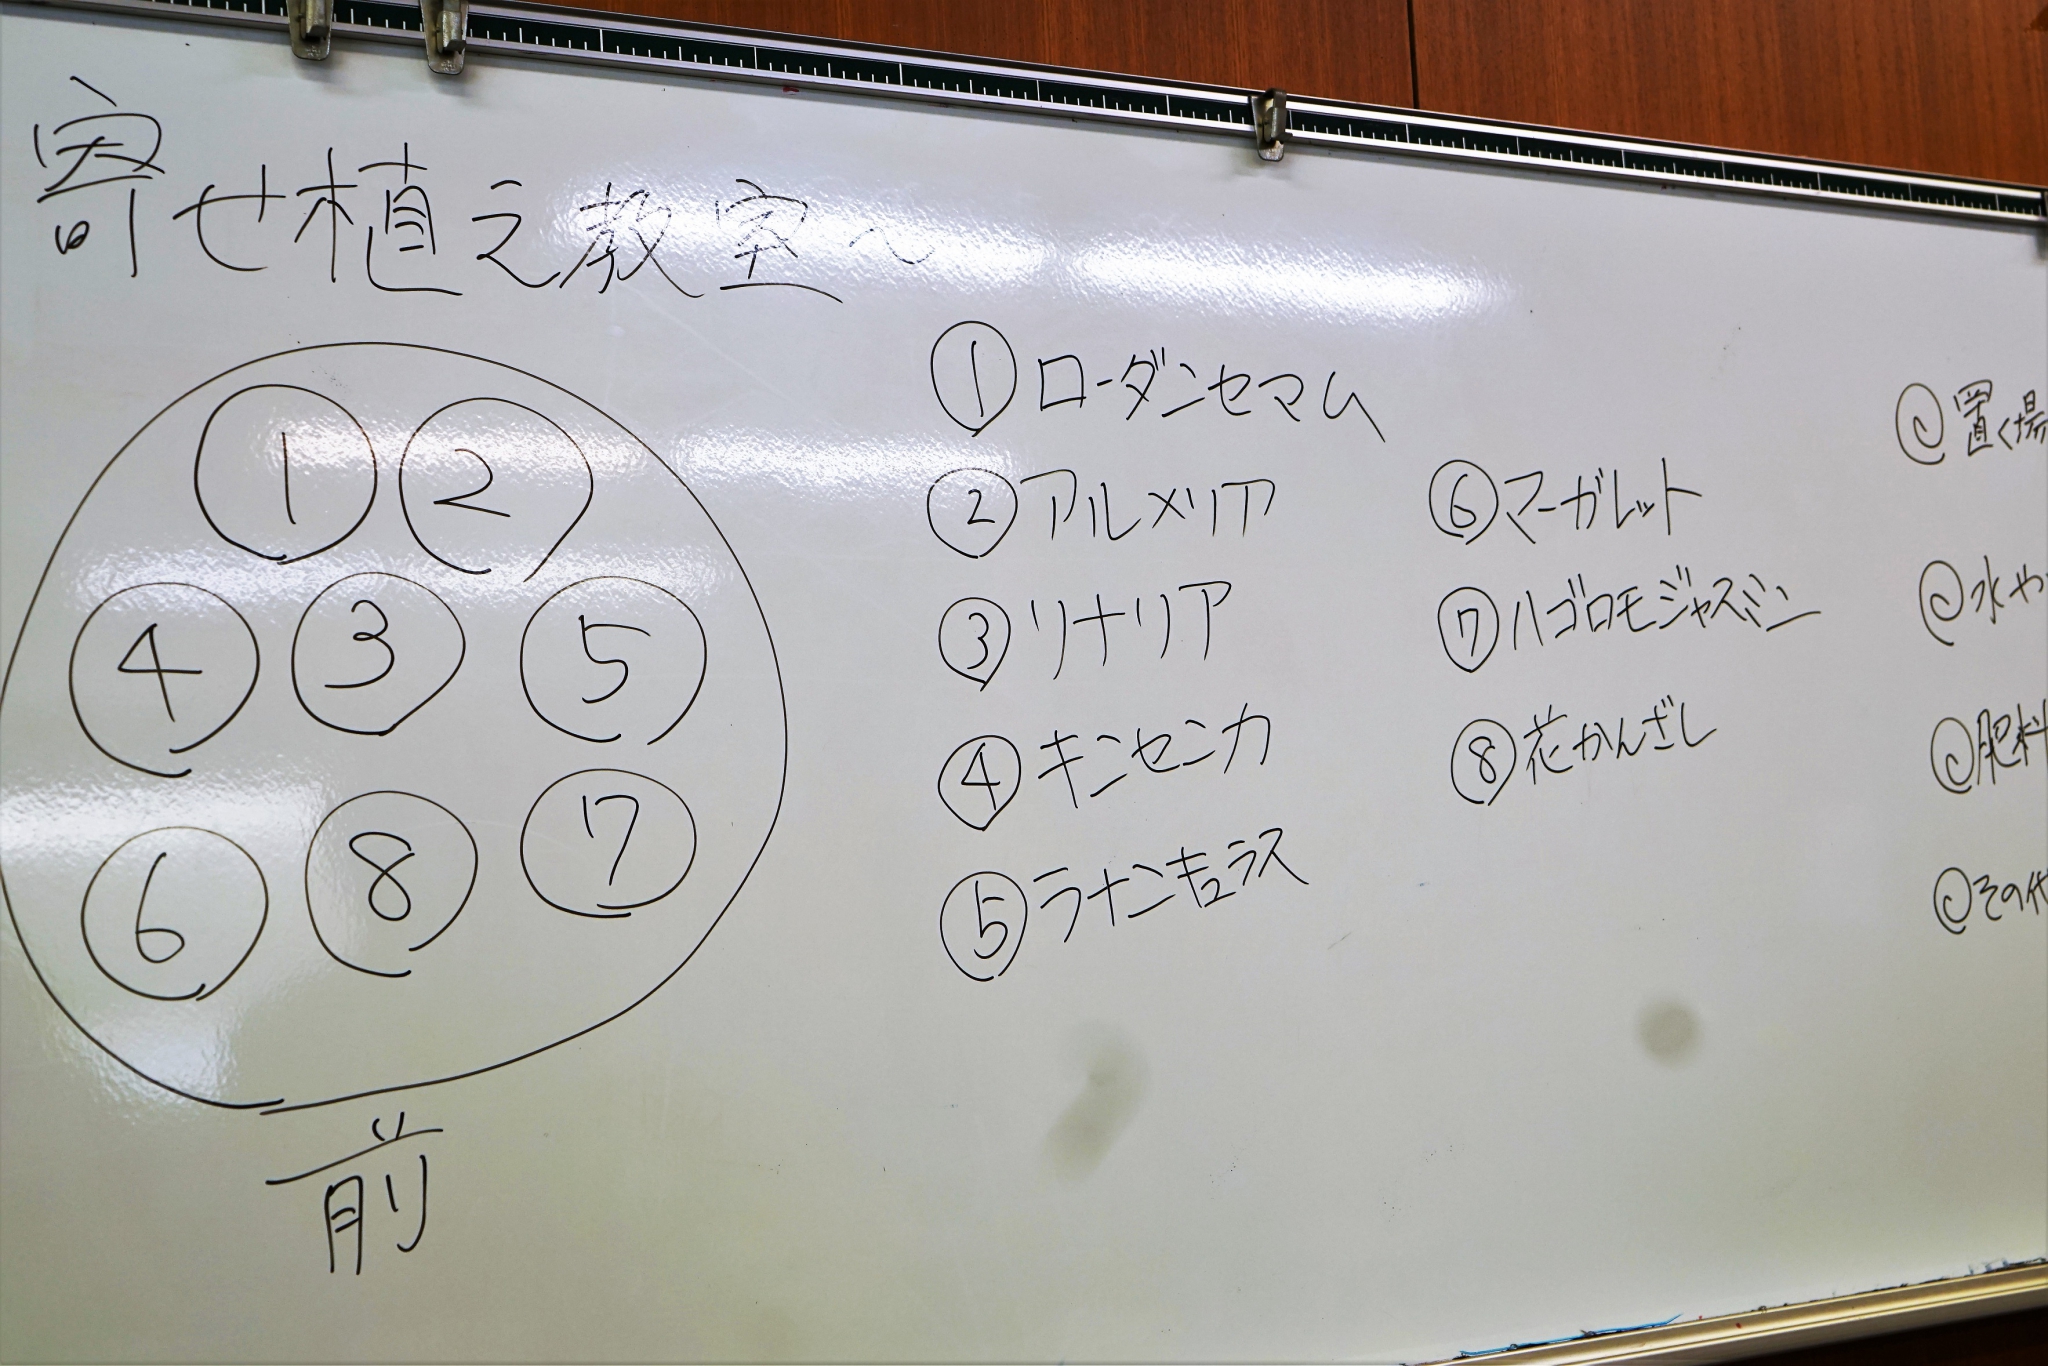 寄せ植え教室〜
① ②
④ ③ ⑤
⑥ ⑧ ⑦
前
①ローダンセマム
②アルメリア
③リナリア
④キンセンカ
⑤ラナンキュラス
⑥マーガレット
⑦ハゴロモジャスミン
⑧花かんざし
置く場
水や
肥料
その他